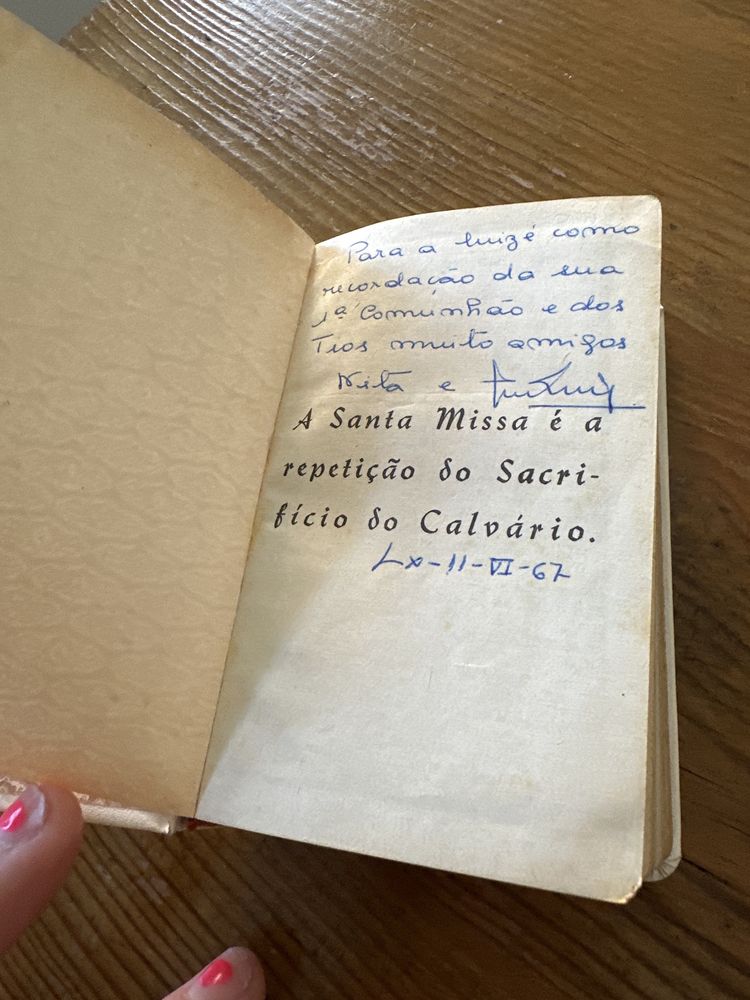 Para a Luizé como
recordação da sua
1ª Comunhão e dos
Tios muito amigos
Nita e
A Santa Missa é a
repetição do Sacri-
fício do Calvário.
Lx-11-VI-67